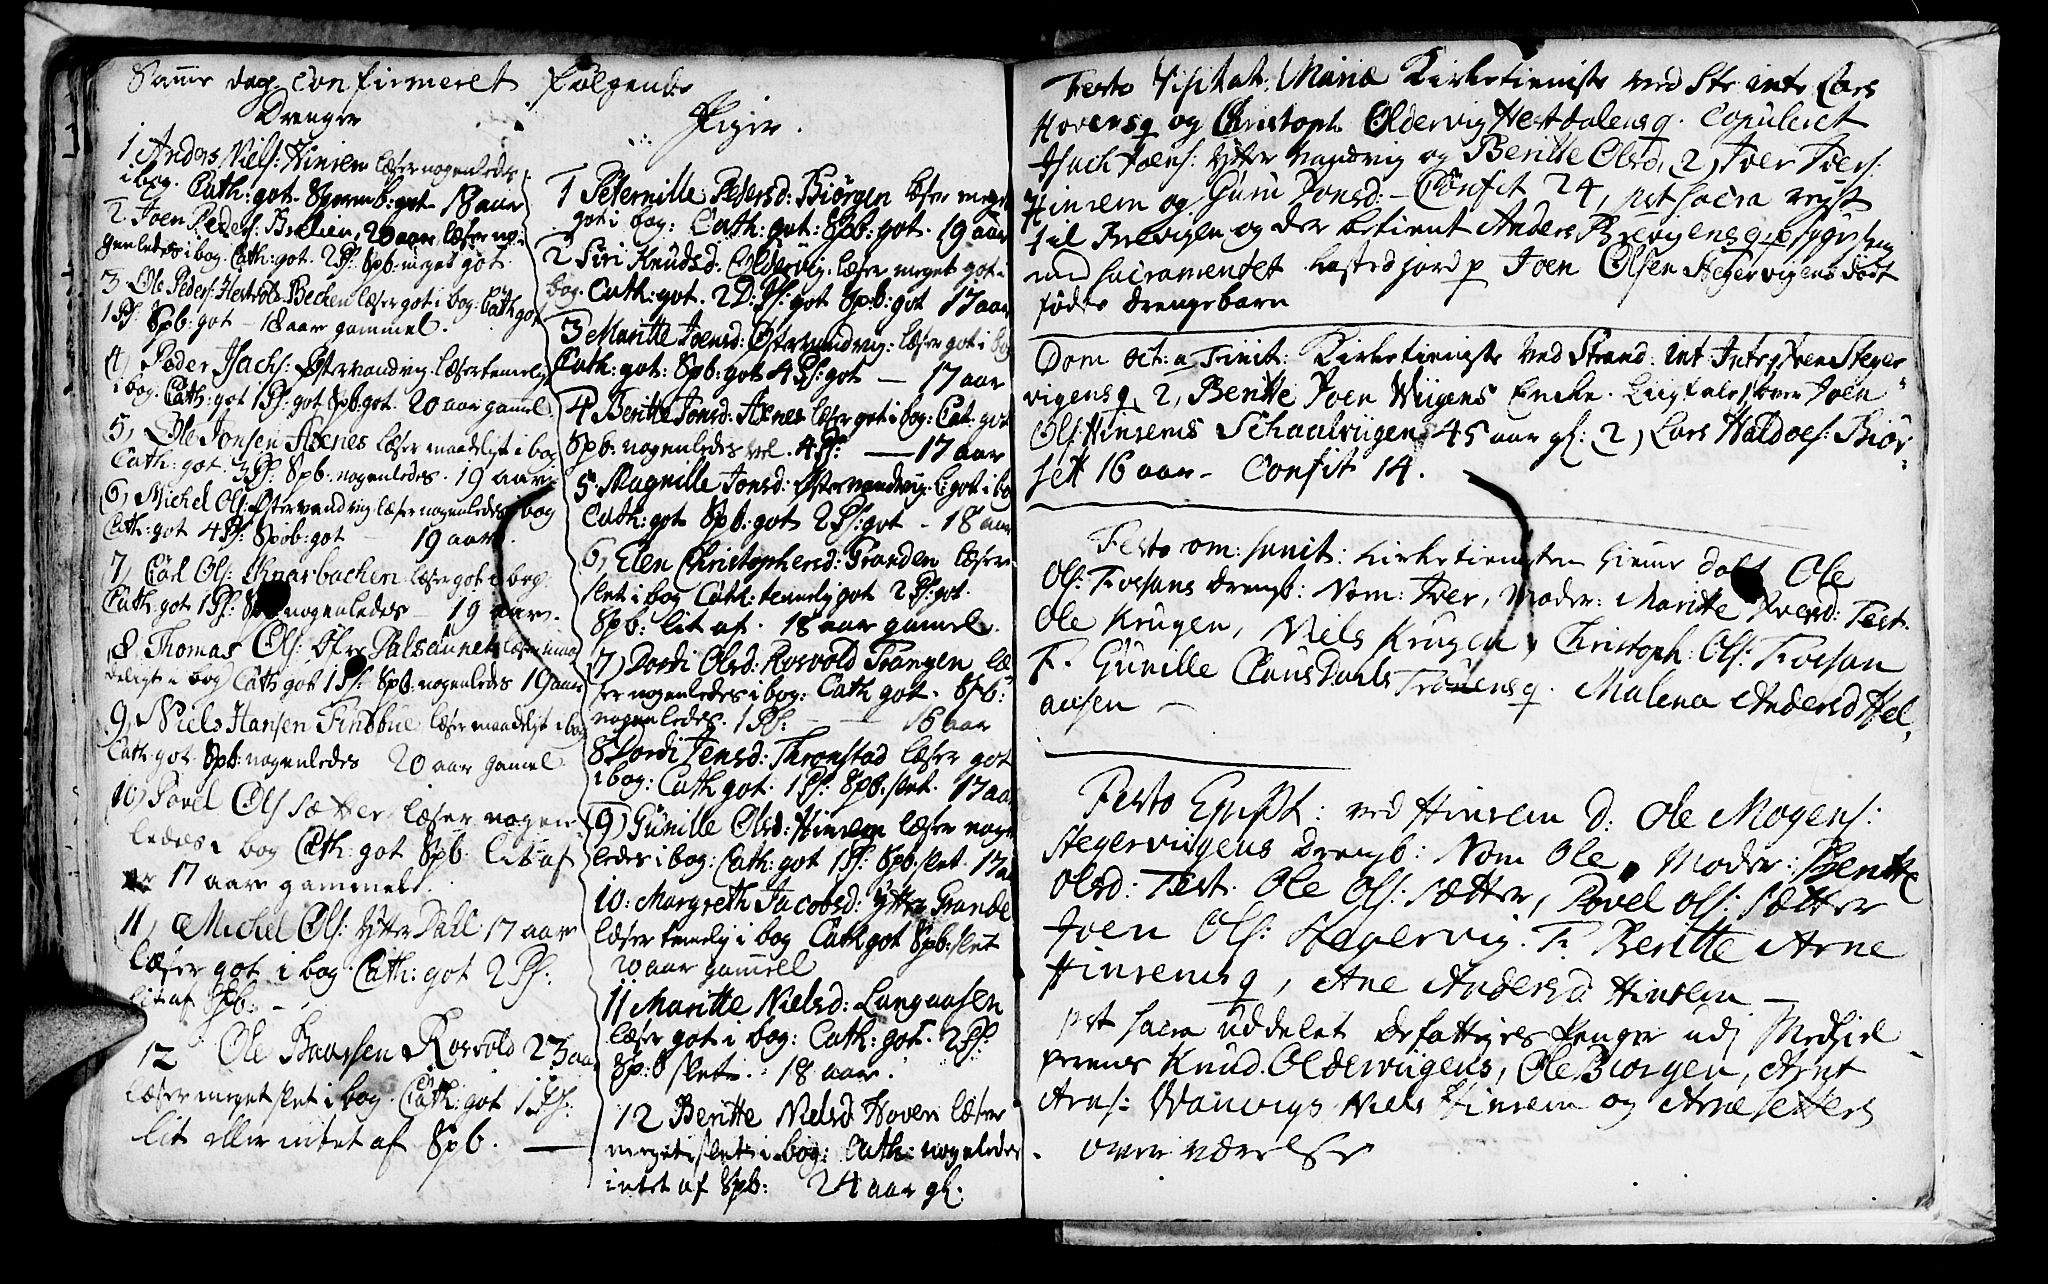 Samme dag confirmeret følgende
Drenger
1 Anders Niels: Hinsem læser nogenledes
i bog. Cath: got. Sporsmb: got 18 aar
2 Joen Peders: Brelien, 20 aar læser no-
genledes i bog. Cath: got. 2 Ps: Spb: meget got.
3 Ole Peders: Hestvolds Bechen læser got i bog: Cath got
1 Ps: Spb: got - 18 aar gammel.
4, Peder Isachs: Østervandvig læser temelig
i bog. Cath: got 1 Ps: got. Spb: got. 20 aar gamel
5, Ole Jonsen Axnes læser maadeligt i bog
Cath: got 3 Ps: Spb: nogenledes. 19 aar.
6, Michel Ols: Østervandvig læser nogenledes i bog
Cath: got 4 Ps: Spb: got - 19 aar.
7, Carl Ols: Snarbachen læser got i bog.
Cath: got 1 Ps: nogenledes - 19 aar.
8 Thomas Ols: Øfre Palsaunet læser maa-
deligt i bog Cath got 1 Ps: Spb: nogenledes 19 aar
9, Niels Hansen Findbue læser maadeligt i bog
Cath: got Spb: nogenledes 20 aar gamel
10, Povel Ols Sætter læser nogen-
ledes i bog Cath: got Spb: lit af
17 aar gammel.
11, Michel Ols: Ytter Dahl 17 aar
læser got i bog. Cath: got 2 Ps:
lit af Spb: -
12 Ole Baarsen Rosvold 23 aar
læser meget slet i bog. Cath: got 1 Ps:
lit eller intet af Spb. -
Piger.
1 Peternille Petersd: Biörgen læser meget
got i bog: Cath: got: Spb: got. 19 aar
2 Siri Knudsd: Oldervig: læser meget got i
bog. Cath: got. 2 Ps: got Spb: got 17 aar
3 Maritte Joensd: Østervandvig: læser got i bog
Cath: got: Spb: got 4 Ps: got - 17 aar
4 Beritte Jonsd: Axnes læser got i bog: Cat: got
Spb: nogenledes vel. 4 Ps: - 17 aar
5 Magnille Jonsd: Østervandvig. l: got i bog
Cath: got Spb: got 2 Ps: got - 18 aar
6, Elen Christophersd: Tranden læser
slet i bog Cath: temelig got 2 Ps: got.
Spb: lit af. 18 aar gamel.
7, Dordi Olsd: Rosvold Trangen læ
ser nogenledes i bog: Cath got. Spb:
nogenledes. 1 Ps: - - 16 aar
8 Dordi Jensd: Thronstad læser got
i bog: Cath got. 1 Ps: Spb. slet. 17 aar
9, Gunille Olsd: Hinsem læser nogen
ledes i bog: Cath: got 1 Ps: Spb. slet. 17 aar
10: Margreth Jacobsd: Ytter Grande
læser temelig i bog Cath got Spb: slet
20 aar gamell
11 Maritte Nielsd: Langaasen
læser got i bog: Cath: got. 2 Ps:
Spb: slet. 18 aar.
12 Beritte Nielsd Hoven læser
meget slet i bog: Cath: nogenledes
intet af Spb: 24 aar gl.
Festo Visitat: Mariæ Kirketieniste ved Str: intr: Lars
Hovensq og Christoph Oldervig Hestdalensq. Copuleret
Isach Joens: Ytter Vandvig og Beritte Olsd, 2, Joer Joers:
Hinsem og Guru Jonsd: - Confit 24, pst sacra reist
til Brevigen og der betient Anders Brevigens
med Sacramentet. kasted jord p Joen Olsen Stegervigens dødt
fødte drengebarn
Dom oct: a Trinit: Kirketieniste ved Strand. int Intr: Joen Steger-
vigensq, 2, Beritte Joen Wiigens Encke. Liigtale 1, over Joen
Ols: Hinsems Schaalviigen 45 aar gl: 2, Lars Haldoes: Biör-
set 16 aar - Confit 14.
Festo om: sanct: kirketienesten hieme døbt Ole
Ols: Fossans drengb: Nom: Iver, Moder: Maritte Iversd: Test.
Ole Krugen, Niels Krugen, Christoph: Ols: Fossan
F. Gunille Claus Dahls Trøensq. Malena Andersd Hel-
aasen -
Festo Epiph: ved Hinsem D: Ole Mogens:
Stegerviigens drengb: Nom Ole, Moder: Beritte
Olsd: Test. Ole Ols: Sætter, Povel Ols: Sætter
Joen Ols: Stegervig. F. Beritte Arne
Hinsemsq, Ane Andersd Hinsem -
pst sacra uddelet de fattiges Penger udj Medhiel-
perens Knud Olderviigens, Ole Biorgen, Arnt
Arns: Wanvigs Niels Hinsem og Arne Setters
overværelse